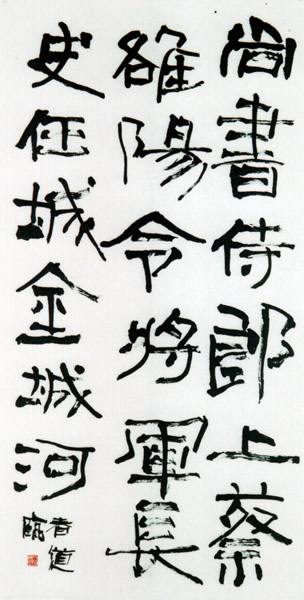 尚書侍郎上蔡
雒陽令將軍長
史任城金城河
春道
臨